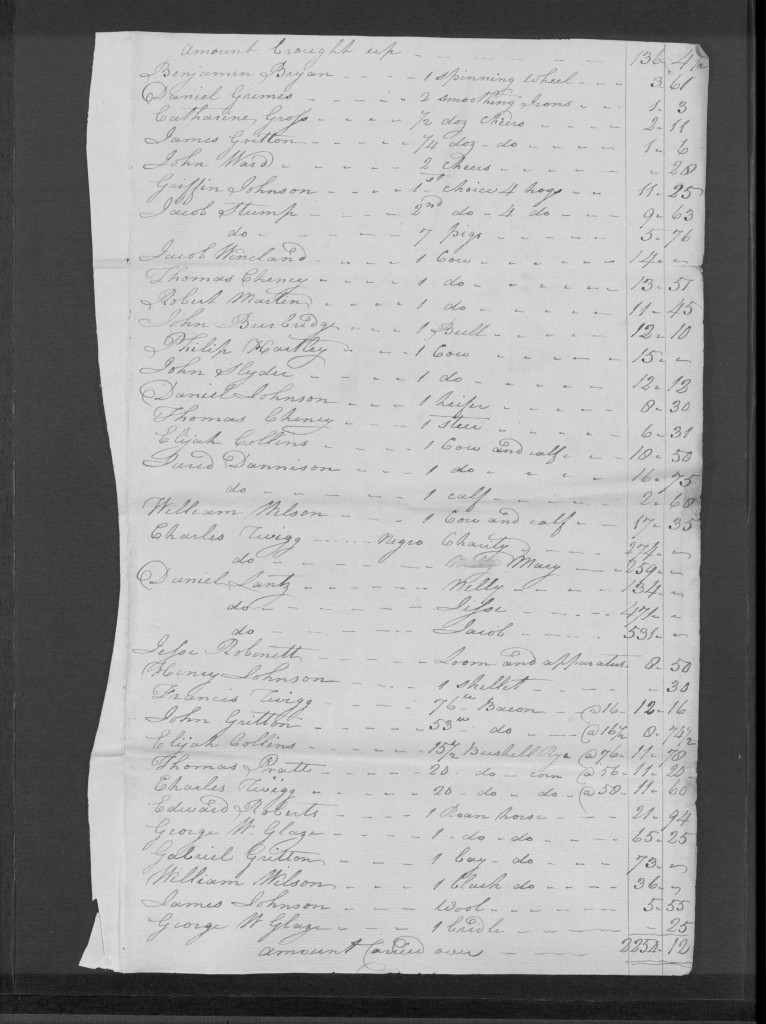 amount brought up - - - - - 136 - 4 1/2
Benjamin Bryan - - - - 1 spinning wheel - - - 3 - 61
Daniel Grimes - - - - 2 smoothing Irons - - - 1 - 3
Catharine Gross - - - - 1/2 doz Cheers - - - - 2 - 11
James Gritton - - - - 1/4 doz - do - - - - 1 - 6
John Ward - - - - 2 Cheers - - - - - - 28
Griffin Johnson - - - - 1st choice 4 hogs - - - 11 - 25
Jacob Stump - - - - 2nd do - 4 do - - - 9 - 63
do - - - - 7 pigs - - - - 5 - 76
Jacob Wineland - - - - 1 Cow - - - - 14 - "
Thomas Cheney - - - - 1 do - - - - 13 - 51
Robert Martin - - - - 1 do - - - - 11 - 45
John Burbridge - - - - 1 Bull - - - - 12 - 10
Philip Hartley - - - - 1 Cow - - - - 15 - "
John Slyder - - - - 1 do - - - - 12 - 12
Daniel Johnson - - - - 1 heifer - - - - 8 - 30
Thomas Cheney - - - - 1 steer - - - - 6 - 31
Elijah Collins - - - - 1 Cow and calf - - 18 - 50
Jared Dannison - - - - 1 do - - - - 16 - 75
do - - - - 1 calf - - - - 2 - 68
William Wilson - - - - 1 Cow and calf - - 17 - 35
Charles Twigg - - - - Negro Charity - - - - 274 - "
do - - - - Mary - - 259 - "
Daniel Lantz - - - - Willy - - - - 134 - "
do - - - - Jesse - - - - 471 - "
do - - - - Jacob - - - - 531 - "
Jesse Robinett - - - - Loom and apparatus - 8 - 50
Henry Johnson - - - - 1 skellet - - - - - 30
Francis Twigg - - - - 76 w Bacon - - @ 16 - 12 - 16
John Gritton - - - - 53 w do - - @ 16 1/2 8 - 74 1/2
Elijah Collins - - - - 15 1/2 Bushell Rye @ 76 - 11 - 78
Thomas Pratt - - - - 20 - do - corn @ 56 - 11 - 20
Charles Twigg - - - - 20 - do - do - @ 58 - 11 - 60
Edward Roberts - - - - 1 Roan horse - - - 21 - 94
George W. Glaze - - - - 1 - do - do - - - - 65 - 25
Gabriel Gritton - - - - 1 bay - do - - - 73 - "
William Wilson - - - - 1 black do - - - 36 - "
James Johnson - - - - Wool - - - - 5 - 55
George W Glaze - - - - 1 bridle - - - - - 25
amount Caried over - - - - 2254 - 12